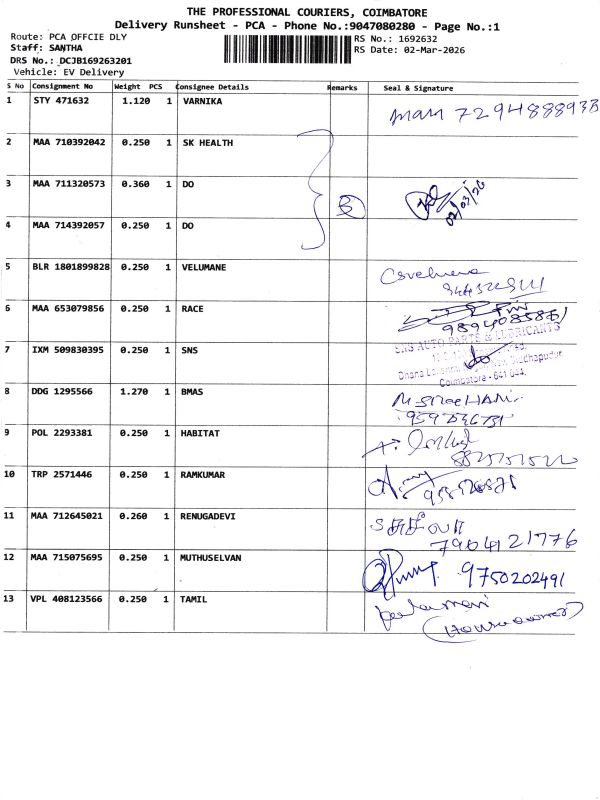 THE PROFESSIONAL COURIERS, COIMBATORE
Delivery Runsheet - PCA - Phone No.:9047080280 - Page No.:1
Route: PCA OFFCIE DLY
Staff: SANTHA
DRS No.: DCJB169263201
Vehicle: EV Delivery
RS No.: 1692632
RS Date: 02-Mar-2026
S No Consignment No Weight PCS Consignee Details Remarks Seal & Signature
1 STY 471632 1.120 1 VARNIKA 7294888933
2 MAA 710392042 0.250 1 SK HEALTH
3 MAA 711320573 0.360 1 DO 3 02/03/26
4 MAA 714392057 0.250 1 DO
5 BLR 1801899828 0.250 1 VELUMANE
6 MAA 653079856 0.250 1 RACE
7 IXM 509830395 0.250 1 SNS
SNS AUTO PARTS & LUBRICANTS
Coimbatore - 641 044.
8 DDG 1295566 1.270 1 BMAS
9 POL 2293381 0.250 1 HABITAT
10 TRP 2571446 0.250 1 RAMKUMAR
11 MAA 712645021 0.260 1 RENUGADEVI
7904121776
12 MAA 715075695 0.250 1 MUTHUSELVAN 9750202491
13 VPL 408123566 0.250 1 TAMIL